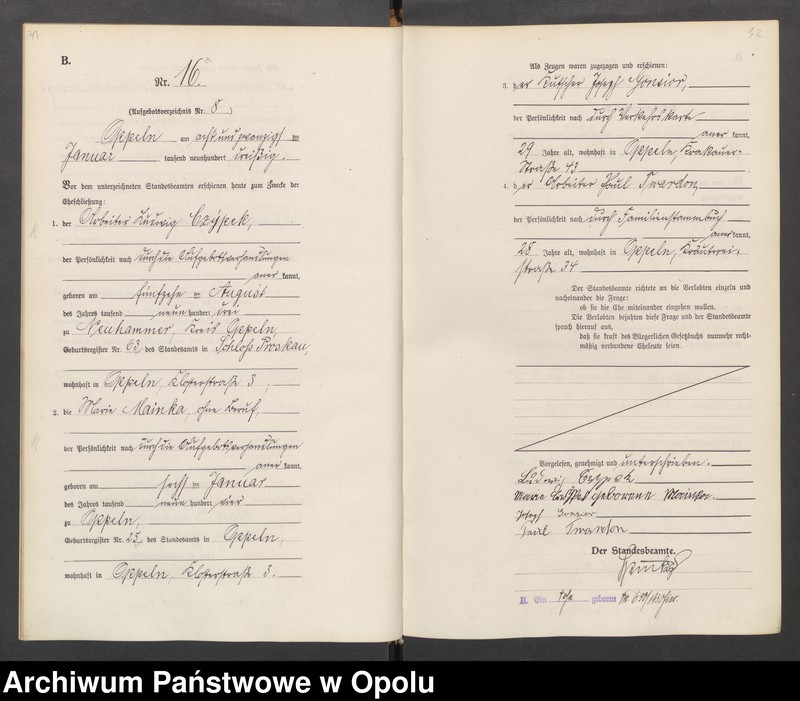 B.
Nr. 16.
(Aufgebotsverzeichnis Nr. 8)
Oppeln am achtundzwanzigsten
Januar tausend neunhundert dreißig.
Vor dem unterzeichneten Standesbeamten erschienen heute zum Zwecke der
Eheschließung:
1. der Arbeiter Ludwig Czÿpek,
der Persönlichkeit nach durch die Aufgebotsverhandlungen
anerkannt,
geboren am fünfzehn ten August
des Jahres tausend neunhundert drei
zu Neuhammer, Kreis Oppeln,
Geburtsregister Nr. 63, des Standesamts in Schloß Proskau,
wohnhaft in Oppeln, Klosterstraße 3,
2. die Marie Mainka, ohne Beruf,
der Persönlichkeit nach durch die Aufgebotsverhandlungen
anerkannt,
geboren am sechsten Januar
des Jahres tausend neunhundert vier
zu Oppeln,
Geburtsregister Nr. 25, des Standesamts in Oppeln,
wohnhaft in Oppeln, Klosterstraße 3.
32
Als Zeugen waren zugezogen und erschienen:
3. der Kutscher Joseph Gonsior,
der Persönlichkeit nach durch Verkehrskarte
anerkannt,
29 Jahre alt, wohnhaft in Oppeln, Krakauer-
Straße 43
4. der Arbeiter Paul Twardon,
der Persönlichkeit nach durch Familienstammbuch
anerkannt,
28 Jahre alt, wohnhaft in Oppeln, Kräuterei-
straße 34
Der Standesbeamte richtete an die Verlobten einzeln und
nacheinander die Frage:
ob sie die Ehe miteinander eingehen wollen.
Die Verlobten bejahten diese Frage und der Standesbeamte
sprach hierauf aus,
daß sie kraft des Bürgerlichen Gesetzbuchs nunmehr recht-
mäßig verbundene Eheleute seien.
Vorgelesen, genehmigt und unterschrieben.
Ludwig Czÿpek
Marie Czÿpek geborene Mainka.
Josef Gonsior
Paul Twardon
Der Standesbeamte.
II. Ein geboren
Archiwum Państwowe w Opolu